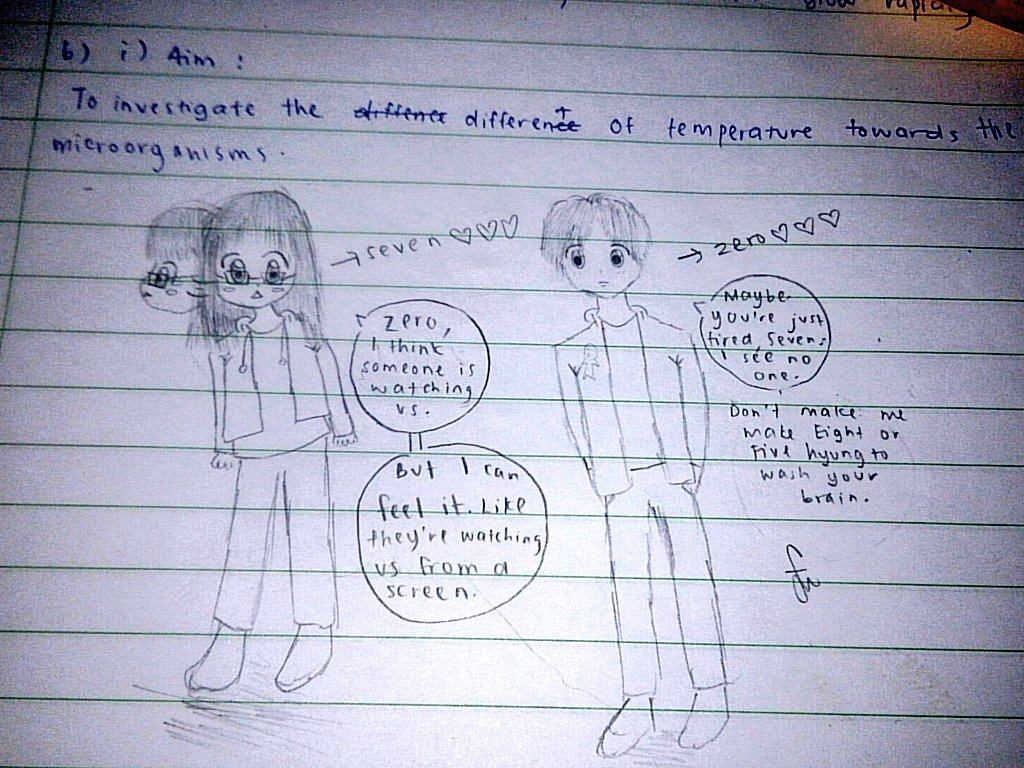 grow rapidly
b) i) Aim :
To investigate the difference of temperature towards the
microorganisms.
→ seven ♡♡♡
→ zero ♡♡♡
Zero,
I think
someone is
watching
us.
Maybe
you're just
tired, Seven.
I see no
one.
But I can
feel it. Like
they're watching
us from a
screen.
Don't make me
make Eight or
Five hyung to
wash your
brain.